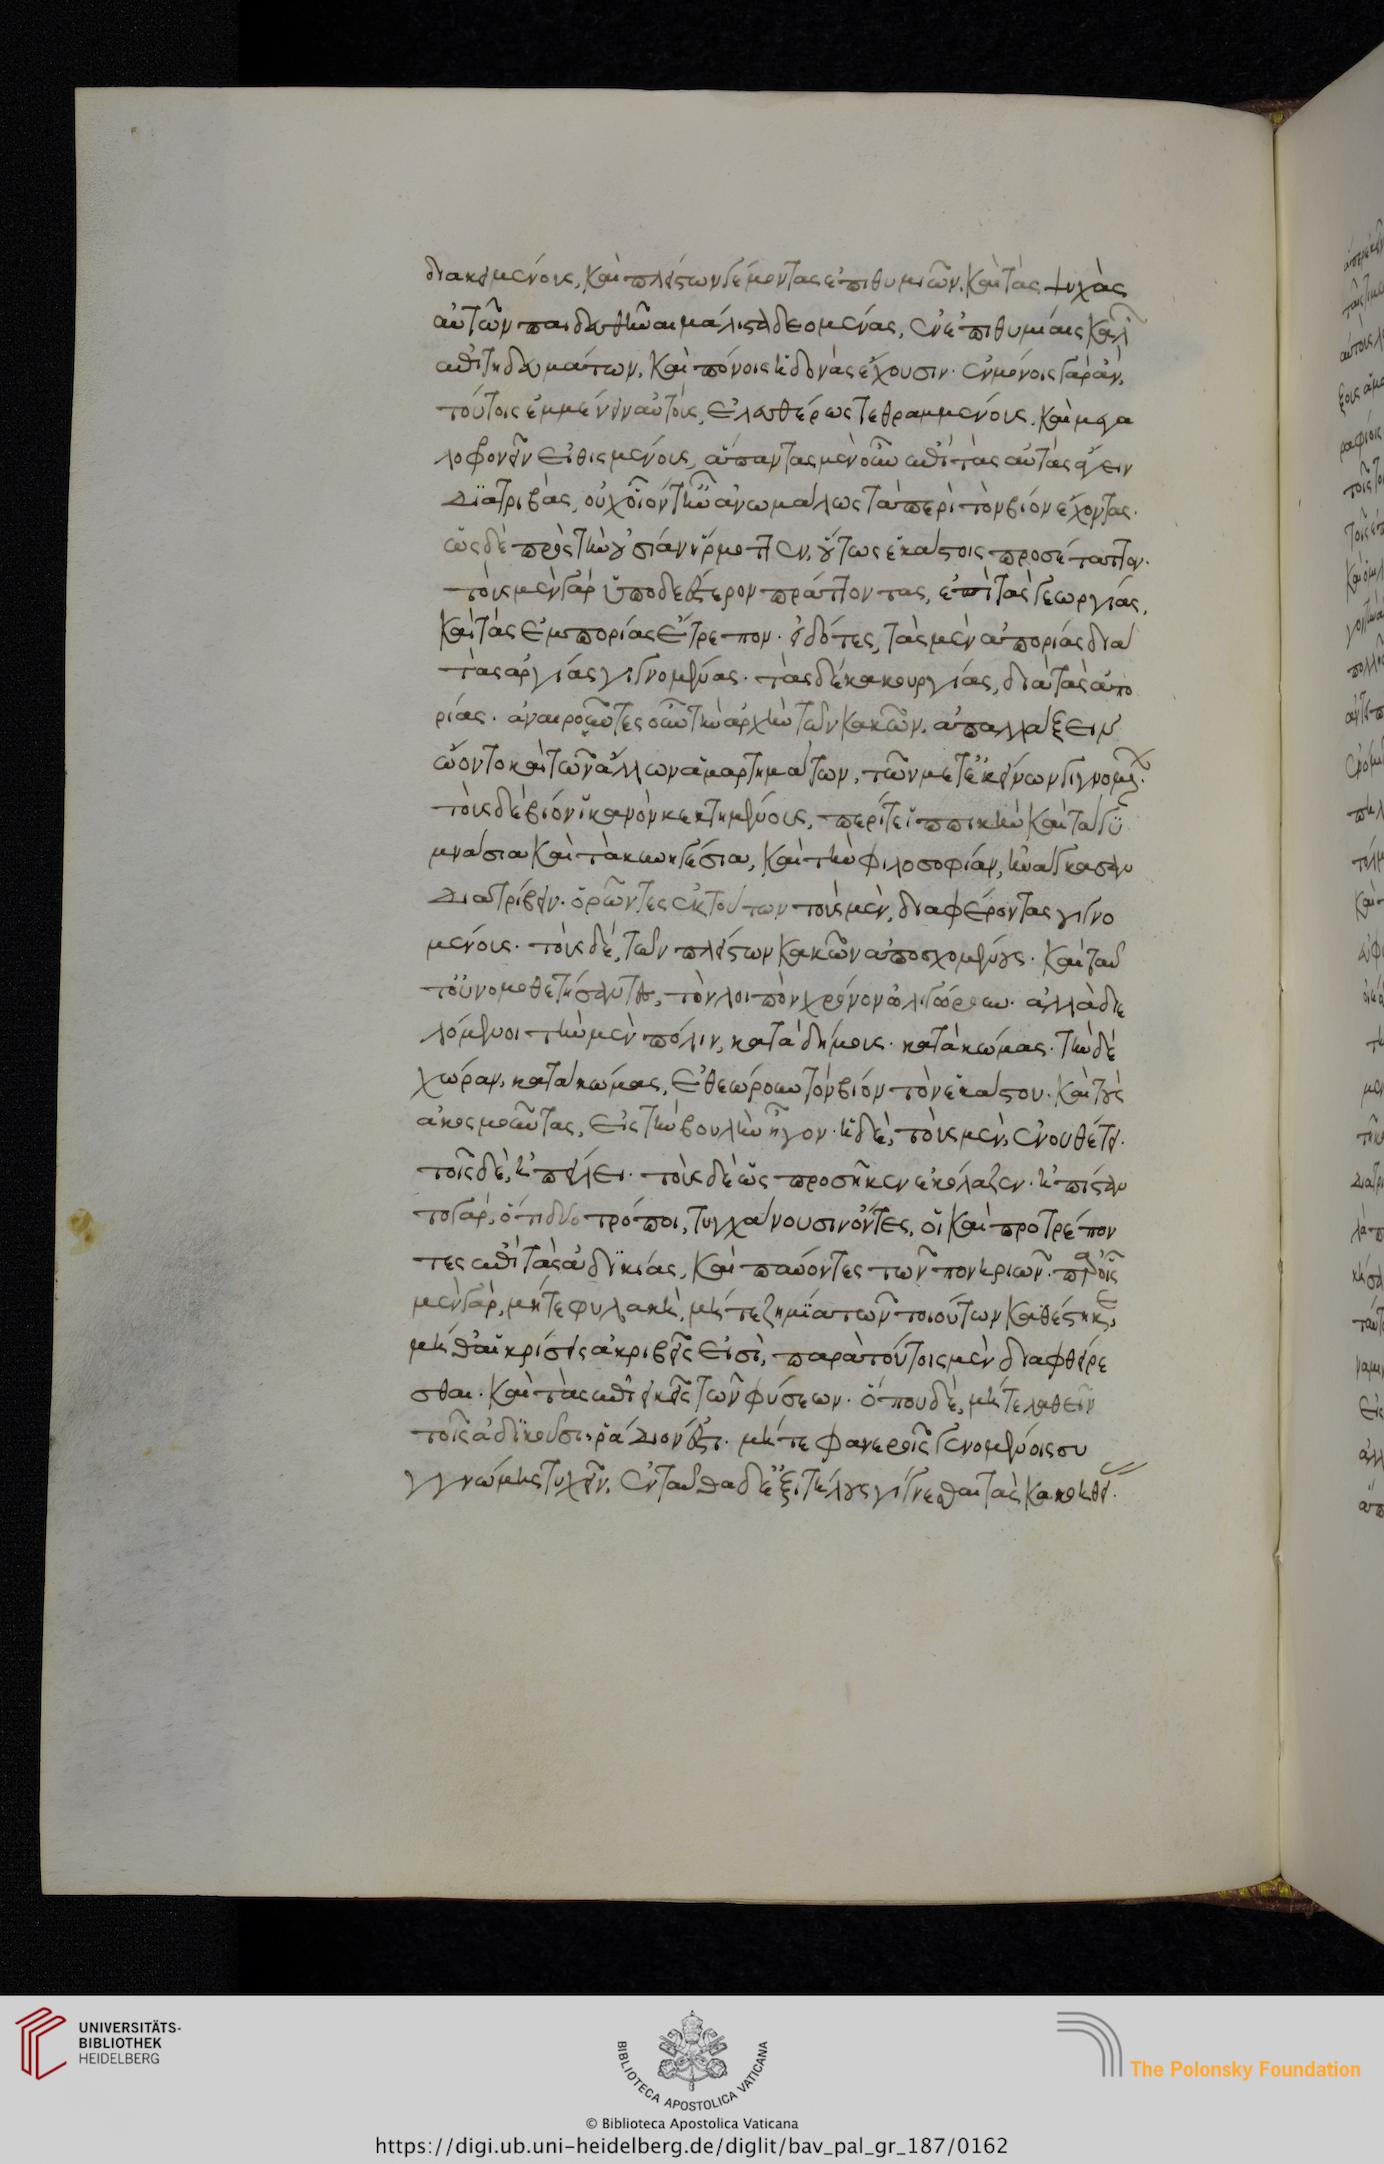 διακειμένους, καὶ πλείστων γέμοντας ἐπιθυμιῶν. καὶ τὰς ψυχὰς
αὐτῶν παιδευθῆναι μάλιστα δεομένας, ἐν ἐπιθυμίαις καλῶν
ἐπιτηδευμάτων. καὶ πόνοις ἡδονὰς ἔχουσιν· ἐν μόνοις γὰρ ἂν,
τούτοις ἐμμένειν αὐτοὺς, ἐλευθέρως τεθραμμένους. καὶ μεγα
λοφρονεῖν εἰθισμένους, ἅπαντας μὲν οὖν ἐπὶ τὰς αὐτὰς ἄγειν
διατριβὰς, οὐχ οἷόν τ' ἦν ἀνωμάλως τὰ περὶ τὸν βίον ἔχοντας.
ὡς δὲ πρὸς τὴν οὐσίαν ἥρμοττεν, οὕτως ἑκάστοις προσέταττον.
τοὺς μὲν γὰρ ὑποδεέστερον πράττοντας, ἐπὶ τὰς γεωργίας,
καὶ τὰς ἐμπορίας ἔτρεπον. εἰδότες, τὰς μὲν ἀπορίας διὰ
τὰς ἀργίας γιγνομένας. τὰς δὲ κακουργίας, διὰ τὰς ἀπο
ρίας. ἀναιροῦντες οὖν τὴν ἀρχὴν τῶν κακῶν. ἀπαλλάξειν
ᾤοντο καὶ τῶν ἄλλων ἁμαρτημάτων, τῶν μετ' ἐκείνων γιγνομέν.
τοὺς δὲ βίον ἱκανὸν κεκτημένους, περί τε ἱππικὴν καὶ τὰ γυ
μνάσια καὶ τὰ κυνηγέσια, καὶ τὴν φιλοσοφίαν, ἠνάγκασαν
διατρίβειν. ὁρῶντες ἐκ τούτων τοὺς μὲν, διαφέροντας γιγνο
μένους. τοὺς δὲ, τῶν πλείστων κακῶν ἀποσχομένους. καὶ ταῦ
τα νομοθετήσαντες, τὸν λοιπὸν χρόνον ὠλιγώρουν. ἀλλὰ διε
λόμενοι τὴν μὲν πόλιν, κατὰ δήμους. κατὰ κώμας. τὴν δὲ
χώραν, κατὰ κώμας, ἐθεώρουν τὸν βίον τὸν ἑκάστου. καὶ τοὺς
ἀκοσμοῦντας, εἰς τὴν βουλὴν ἦγον. ἡ δὲ, τοὺς μὲν, ἐνουθέτει.
τοῖς δὲ, ἠπείλει. τοὺς δὲ ὡς προσῆκεν ἐκόλαζεν. ἠπίσταν
το γὰρ, ὅτι δύο τρόποι, τυγχάνουσιν ὄντες, οἳ καὶ προτρέπον
τες ἐπὶ τὰς ἀδικίας, καὶ παύοντες τῶν πονηριῶν. παρ' οἷς
μὲν γὰρ, μήτε φυλακὴ, μήτε ζημία τῶν τοιούτων καθέστηκε,
μήθ' αἱ κρίσεις ἀκριβεῖς εἰσὶ, παρὰ τούτοις μὲν διαφθείρε
σθαι. καὶ τὰς ἐπιεικεῖς τῶν φύσεων. ὅπου δὲ, μήτε λαθεῖν
τοῖς ἀδικοῦσι ῥᾴδιόν ἐστι. μήτε φανεροῖς γενομένοις συ
γγνώμης τυχεῖν, ἐνταῦθα δ' ἐξιτήλους γίγνεσθαι τὰς κακοηθεί.
UNIVERSITÄTS-
BIBLIOTHEK
HEIDELBERG
BIBLIOTECA APOSTOLICA VATICANA
The Polonsky Foundation
© Biblioteca Apostolica Vaticana
https://digi.ub.uni-heidelberg.de/diglit/bav_pal_gr_187/0162